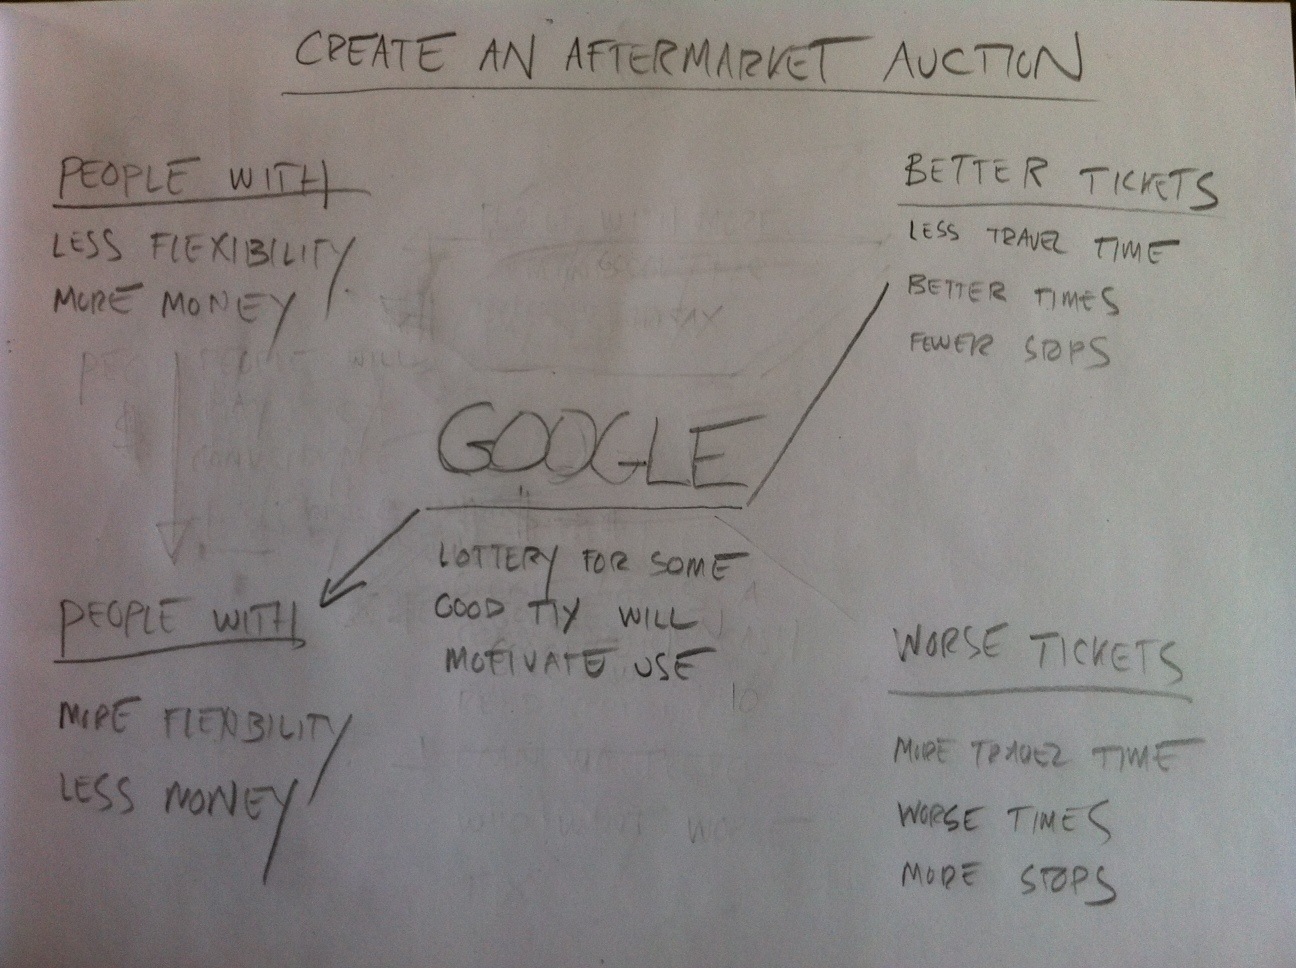 CREATE AN AFTERMARKET AUCTION
PEOPLE WITH
LESS FLEXIBILITY
MORE MONEY
BETTER TICKETS
LESS TRAVEL TIME
BETTER TIMES
FEWER STOPS
GOOGLE
LOTTERY FOR SOME
GOOD TIX WILL
MOTIVATE USE
PEOPLE WITH
MORE FLEXIBILITY
LESS MONEY
WORSE TICKETS
MORE TRAVEL TIME
WORSE TIMES
MORE STOPS